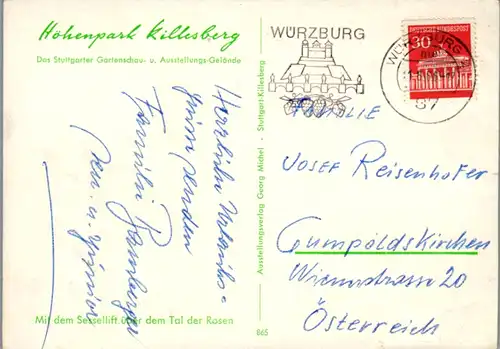 Höhenpark Killesberg
Das Stuttgarter Gartenschau- u. Ausstellungs-Gelände
Herzliche Urlaubs-
grüße senden
Familie Bamberger
Sen. u. Junior
Mit dem Sessellift über dem Tal der Rosen
Ausstellungsverlag Georg Michel · Stuttgart-Killesberg
865
WÜRZBURG
DEUTSCHE BUNDESPOST
30
WÜRZBURG
87
FAMILIE
JOSEF Reisenhofer
Gumpoldskirchen
Wienerstrasse 20
Österreich